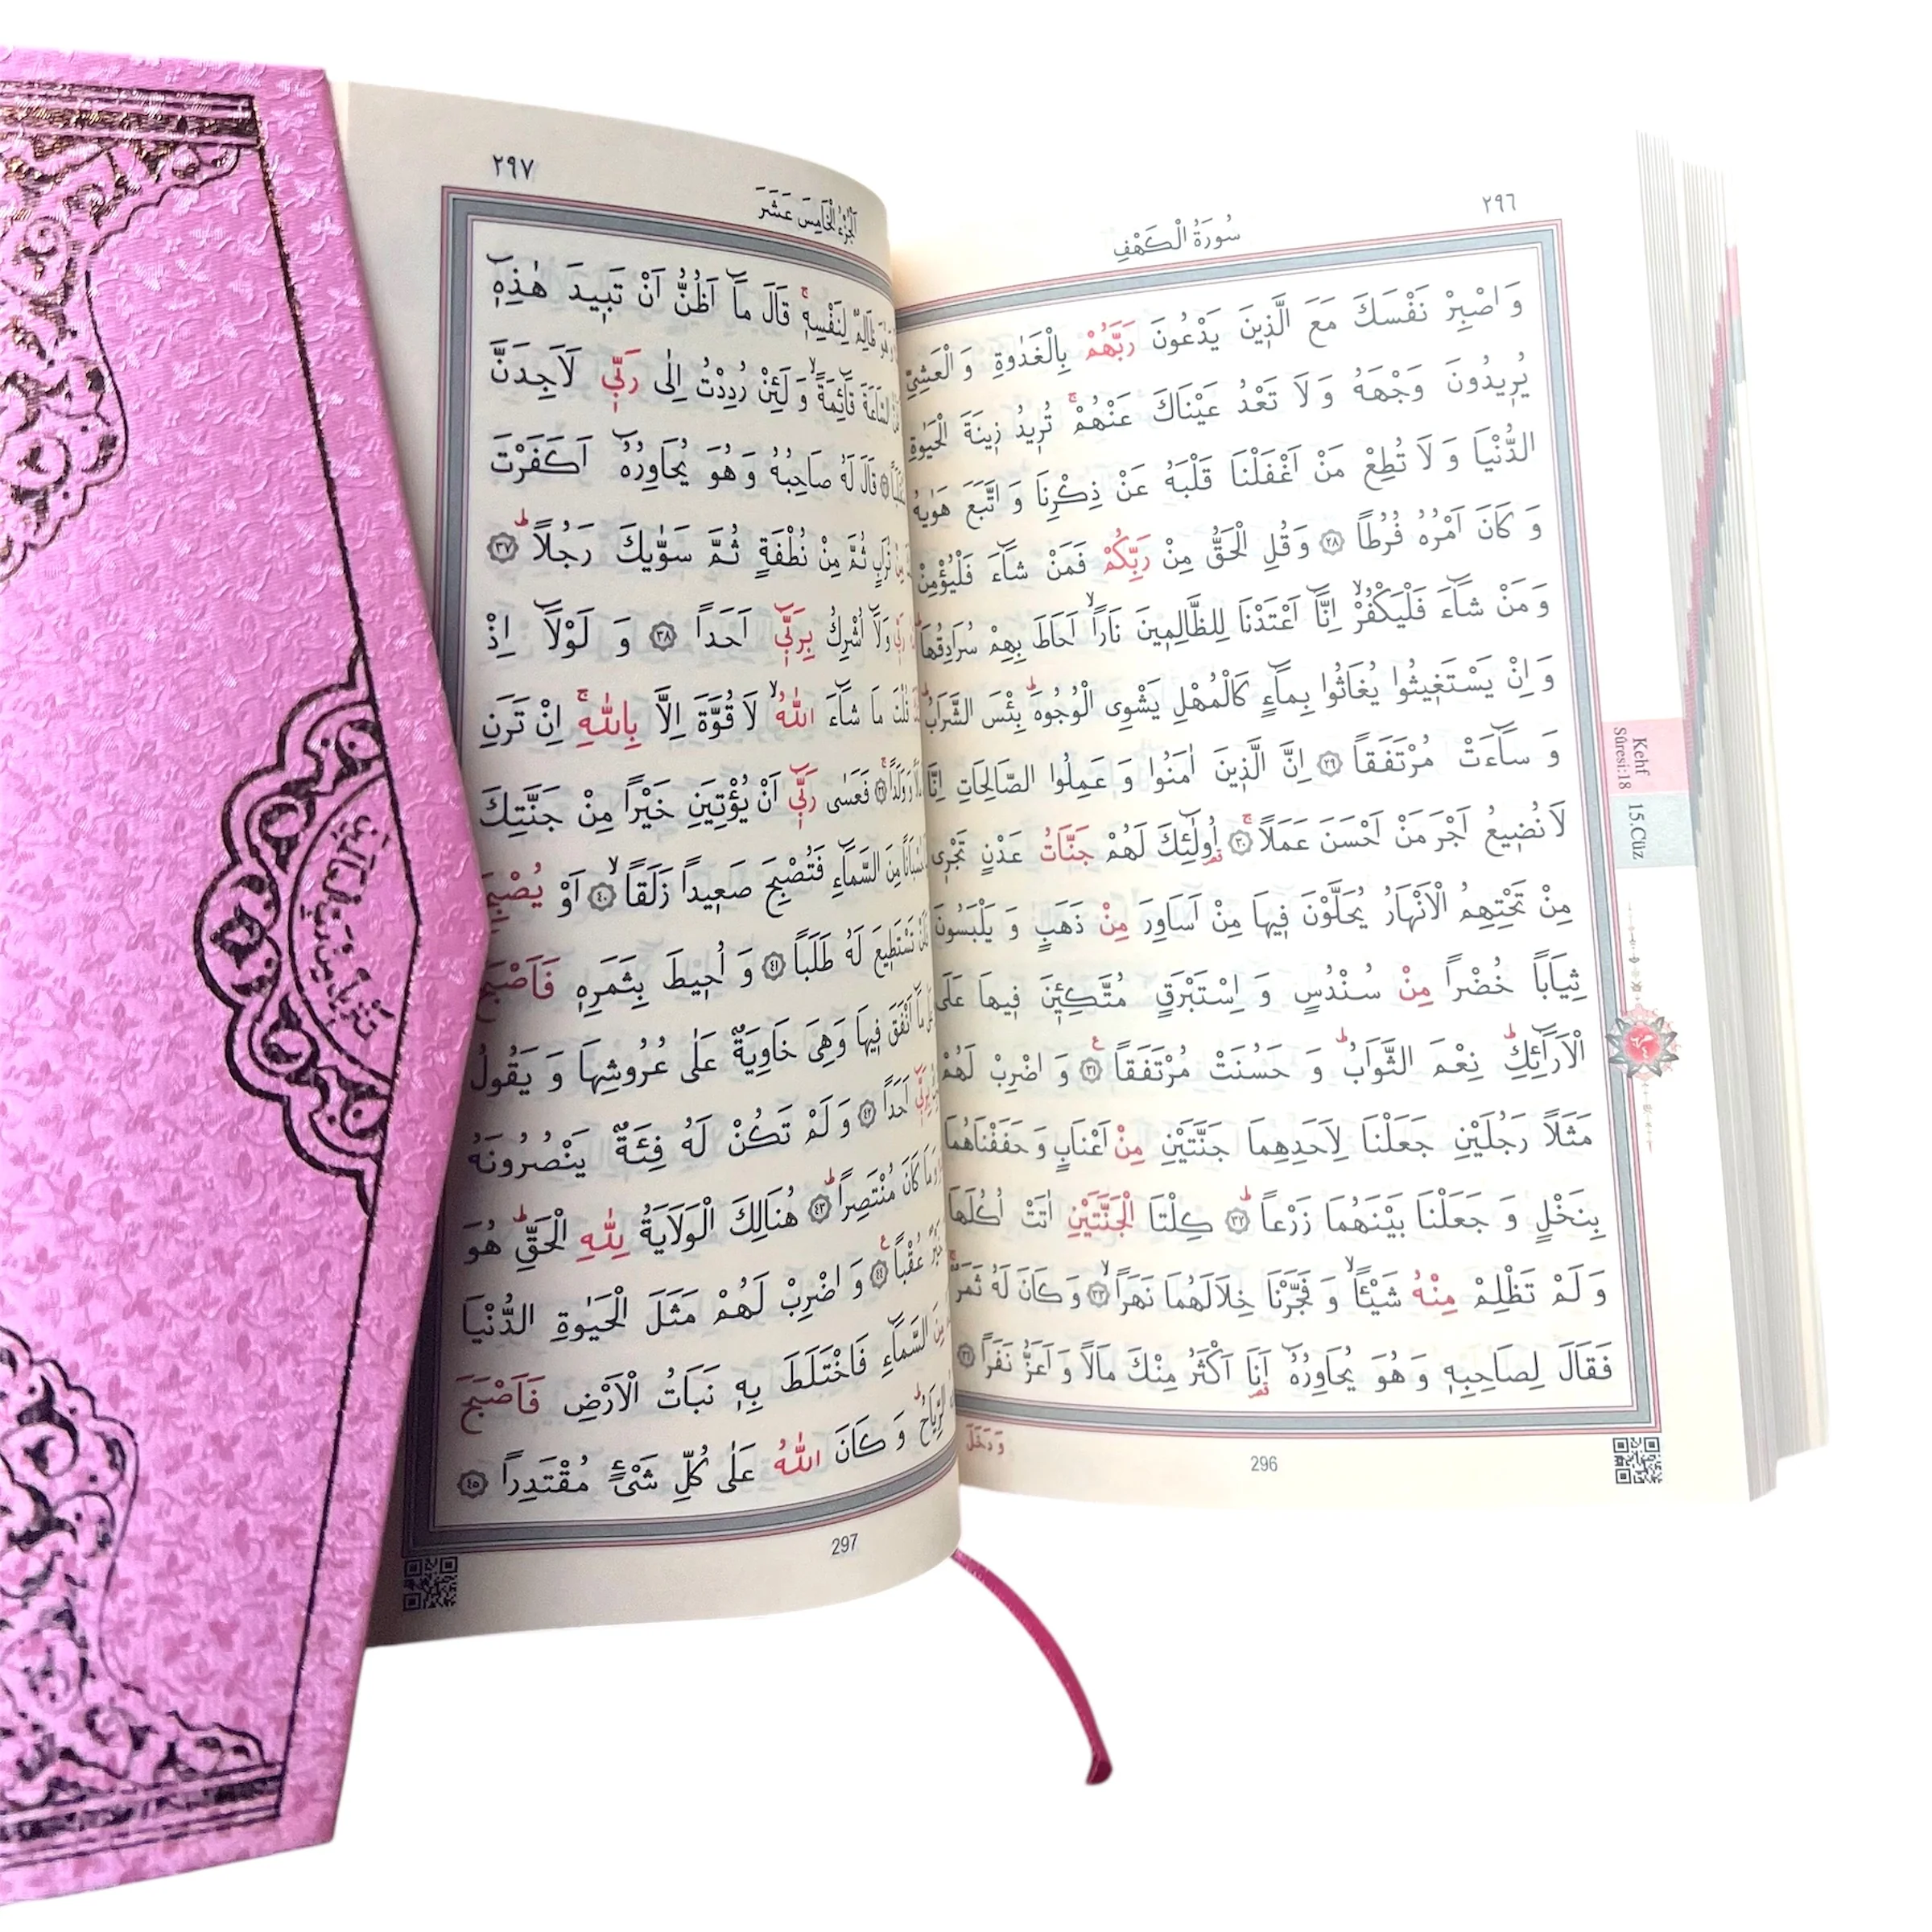 ٢٩٦
سُورَةُ الْكَهْفِ
وَاصْبِرْ نَفْسَكَ مَعَ الَّذِينَ يَدْعُونَ رَبَّهُمْ بِالْغَدٰوةِ وَ الْعَشِيِّ
يُرِيدُونَ وَجْهَهُ وَ لَا تَعْدُ عَيْنَاكَ عَنْهُمْۚ تُرِيدُ زِينَةَ الْحَيٰوةِ
الدُّنْيَا وَ لَا تُطِعْ مَنْ اَغْفَلْنَا قَلْبَهُ عَنْ ذِكْرِنَا وَ اتَّبَعَ هَوٰيهُ
وَ كَانَ اَمْرُهُ فُرُطاً ٢٨ وَ قُلِ الْحَقُّ مِنْ رَبِّكُمْ فَمَنْ شَٓاءَ فَلْيُؤْمِنْ
وَ مَنْ شَٓاءَ فَلْيَكْفُرْۙ اِنَّٓا اَعْتَدْنَا لِلظَّالِمِينَ نَاراًۙ اَحَاطَ بِهِمْ سُرَادِقُهَاۜ
وَ اِنْ يَسْتَغِيثُوا يُغَاثُوا بِمَٓاءٍ كَالْمُهْلِ يَشْوِى الْوُجُوهَۜ بِئْسَ الشَّرَابُۜ
وَ سَٓاءَتْ مُرْتَفَقاً ٢٩ اِنَّ الَّذِينَ اٰمَنُوا وَ عَمِلُوا الصَّالِحَاتِ اِنَّا
لَا نُضِيعُ اَجْرَ مَنْ اَحْسَنَ عَمَلاًۚ ٣٠ اُولٰٓئِكَ لَهُمْ جَنَّاتُ عَدْنٍ تَجْرِى
مِنْ تَحْتِهِمُ الْاَنْهَارُ يُحَلَّوْنَ فِيهَا مِنْ اَسَاوِرَ مِنْ ذَهَبٍ وَ يَلْبَسُونَ
ثِيَاباً خُضْراً مِنْ سُنْدُسٍ وَ اِسْتَبْرَقٍ مُتَّكِـِٔينَ فِيهَا عَلَى
الْاَرَٓائِكِۜ نِعْمَ الثَّوَابُۜ وَ حَسُنَتْ مُرْتَفَقاً ٣١ وَ اضْرِبْ لَهُمْ
مَثَلاً رَجُلَيْنِ جَعَلْنَا لِاَحَدِهِمَا جَنَّتَيْنِ مِنْ اَعْنَابٍ وَ حَفَفْنَاهُمَا
بِنَخْلٍ وَ جَعَلْنَا بَيْنَهُمَا زَرْعاًۜ ٣٢ كِلْتَا الْجَنَّتَيْنِ اٰتَتْ اُكُلَهَا
وَ لَمْ تَظْلِمْ مِنْهُ شَيْـٔاًۙ وَ فَجَّرْنَا خِلَالَهُمَا نَهَراًۙ ٣٣ وَ كَانَ لَهُ ثَمَرٌۚ
فَقَالَ لِصَاحِبِهِ وَ هُوَ يُحَاوِرُهُٓ اَنَا اَكْثَرُ مِنْكَ مَالاً وَ اَعَزُّ نَفَراً ٣٤
وَ دَخَلَ
296
Kehf
Sûresi:18
15.Cüz
٢٩٧
اَلْجُزْءُ الْخَامِسَ عَشَرَ
ظَالِمٌ لِنَفْسِهِۚ قَالَ مَٓا اَظُنُّ اَنْ تَبِيدَ هٰذِهِٓ
السَّاعَةَ قَٓائِمَةًۙ وَ لَئِنْ رُدِدْتُ اِلٰى رَبِّى لَاَجِدَنَّ
قَالَ لَهُ صَاحِبُهُ وَ هُوَ يُحَاوِرُهُٓ اَكَفَرْتَ
تُرَابٍ ثُمَّ مِنْ نُطْفَةٍ ثُمَّ سَوّٰيكَ رَجُلاًۜ ٣٧
رَبِّى وَلَٓا اُشْرِكُ بِرَبِّٓى اَحَداً ٣٨ وَ لَوْلَٓا اِذْ
قُلْتَ مَا شَٓاءَ اللّٰهُۙ لَا قُوَّةَ اِلَّا بِاللّٰهِۚ اِنْ تَرَنِ
وَوَلَداًۚ ٣٩ فَعَسٰى رَبِّٓى اَنْ يُؤْتِيَنِ خَيْراً مِنْ جَنَّتِكَ
حُسْبَاناً مِنَ السَّمَٓاءِ فَتُصْبِحَ صَعِيداً زَلَقاًۙ ٤٠ اَوْ يُصْبِحَ
تَسْتَطِيعَ لَهُ طَلَباً ٤١ وَ اُحِيطَ بِثَمَرِهِ فَاَصْبَحَ
مَٓا اَنْفَقَ فِيهَا وَهِىَ خَاوِيَةٌ عَلٰى عُرُوشِهَا وَ يَقُولُ
بِرَبِّٓى اَحَداً ٤٢ وَ لَمْ تَكُنْ لَهُ فِئَةٌ يَنْصُرُونَهُ
وَمَا كَانَ مُنْتَصِراًۜ ٤٣ هُنَالِكَ الْوَلَايَةُ لِلّٰهِ الْحَقِّۜ هُوَ
خَيْرٌ عُقْباً ٤٤ وَ اضْرِبْ لَهُمْ مَثَلَ الْحَيٰوةِ الدُّنْيَا
مِنَ السَّمَٓاءِ فَاخْتَلَطَ بِهِ نَبَاتُ الْاَرْضِ فَاَصْبَحَ
الرِّيَاحُۜ وَ كَانَ اللّٰهُ عَلٰى كُلِّ شَىْءٍ مُقْتَدِراً ٤٥
297
تَنْزِيلٌ مِنْ رَبِّ الْعَالَمِينَ